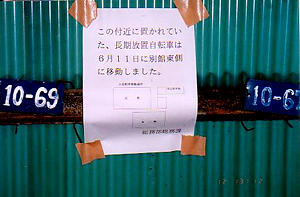 この付近に置かれてい
た、長期放置自転車は
6月11日に別館東側
に移動しました。
総務部総務課
10-69
10-6